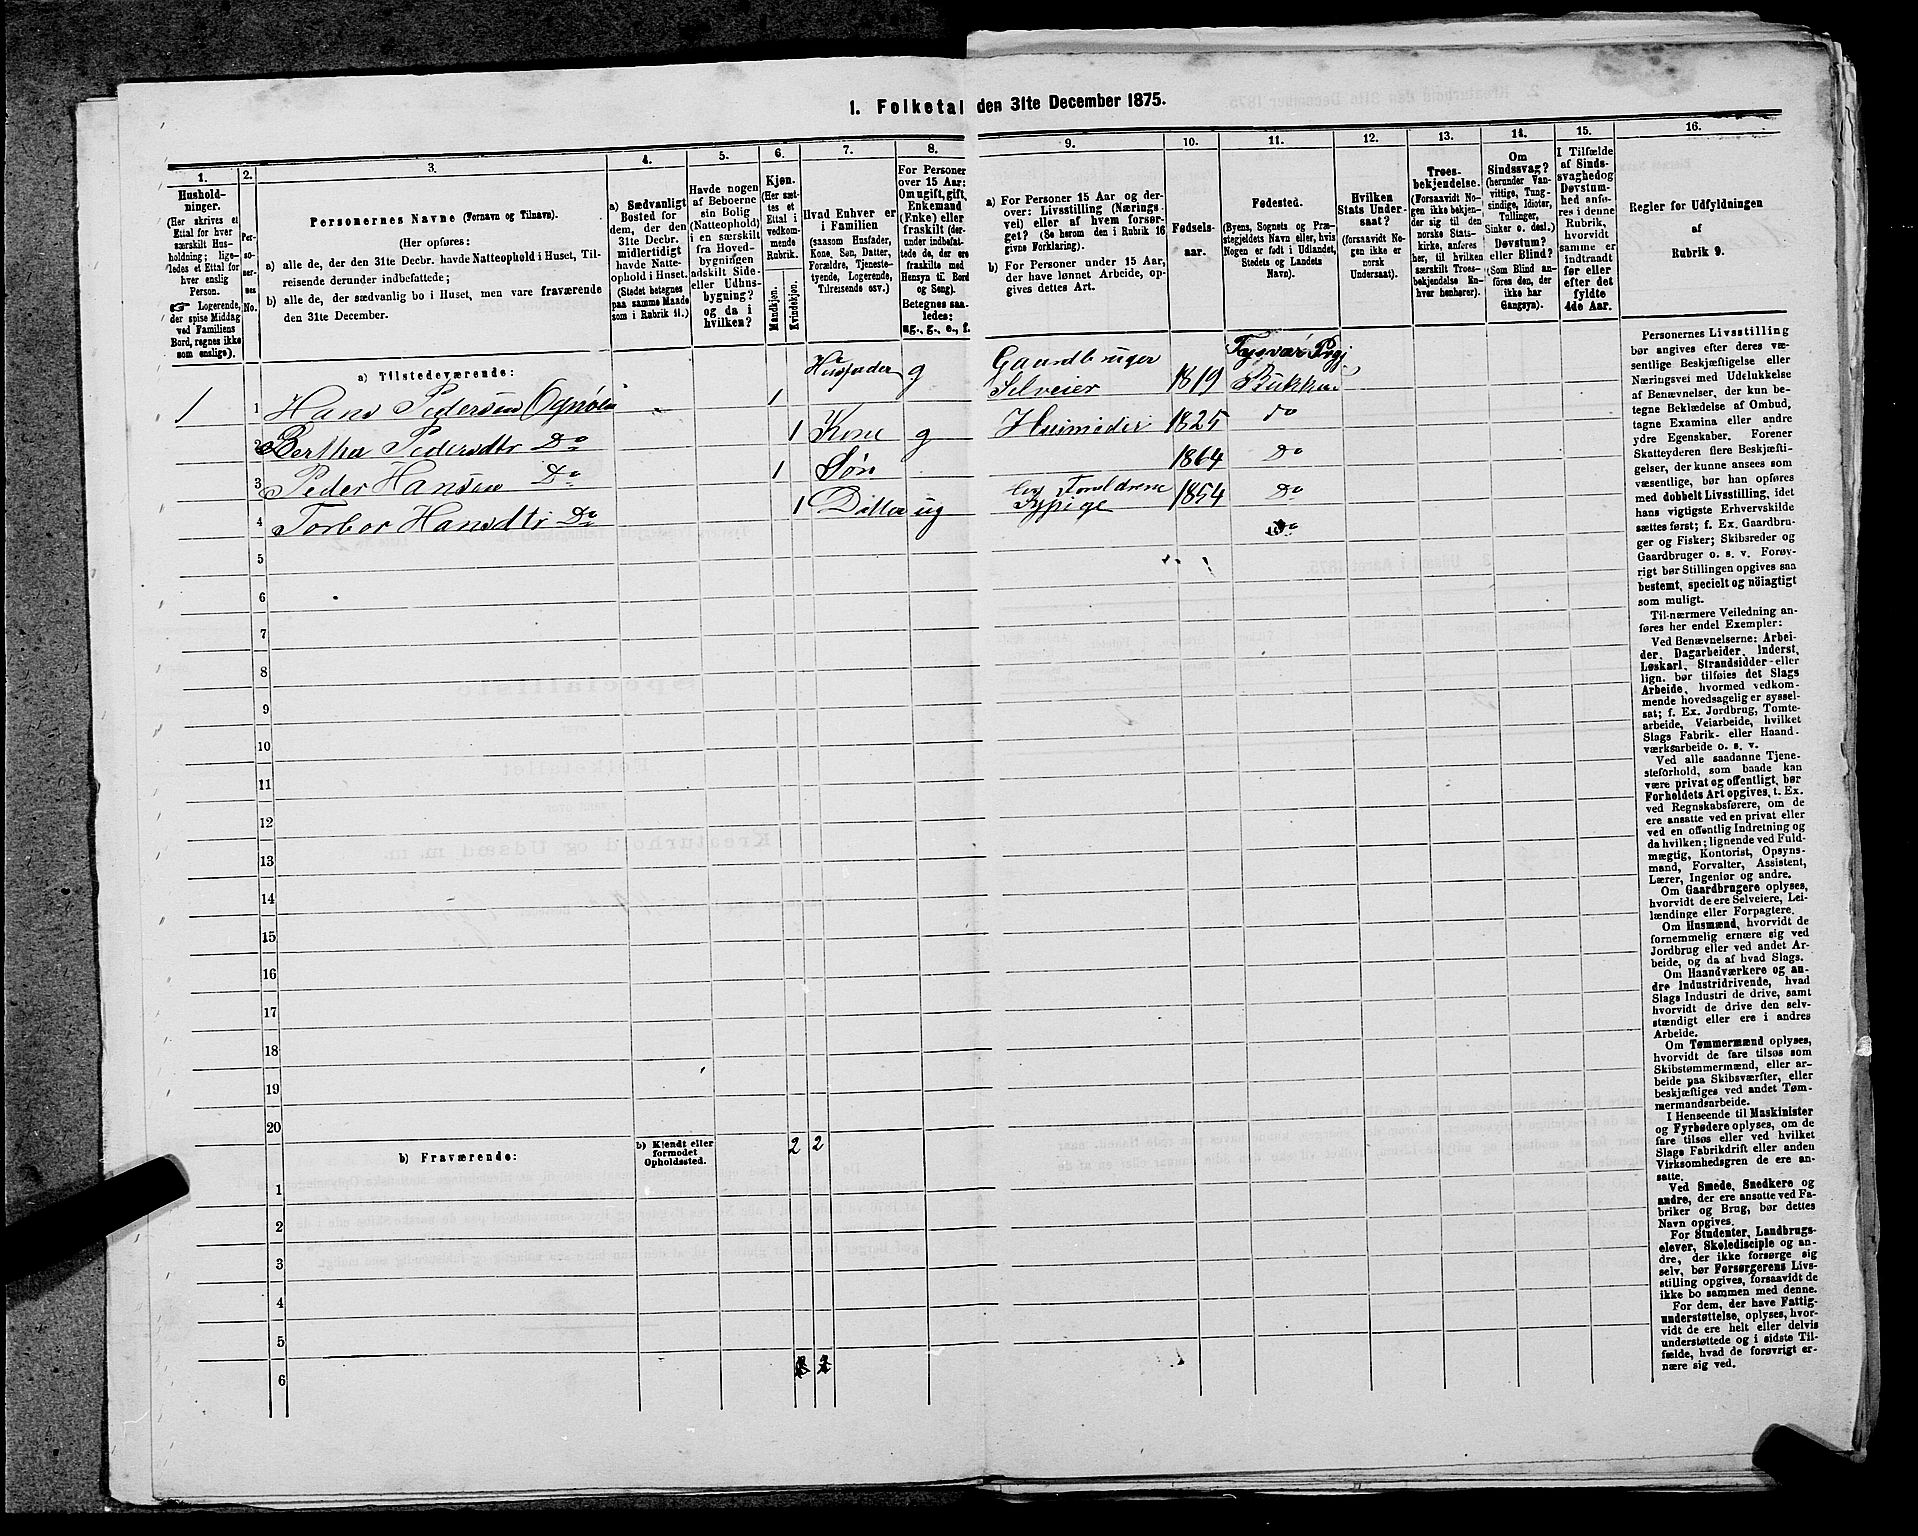 1. Folketal den 31te December 1875.
1.
2.
3.
4.
5.
6.
7.
8.
9.
10.
11.
12.
13.
14.
15.
16.
Hushold-
ninger.
(Her skrives et
Ettal for hver
særskilt Hus-
holdning; lige-
ledes et Ettal for
hver enslig
Person.
☞ Logerende,
der spise Middag
ved Familiens
Bord, regnes ikke
som enslige).
Per-
so-
ner-
nes
No.
Personernes Navne (Fornavn og Tilnavn).
(Her opføres:
a) alle de, der den 31te Decbr. havde Natteophold i Huset, Til-
reisende derunder indbefattede;
b) alle de, der sædvanlig bo i Huset, men vare fraværende
den 31te December.
a) Sædvanligt
Bosted for
dem, der den
31te Decbr.
midlertidigt
havde Natte-
ophold i Huset.
(Stedet betegnes
paa samme Maade
som i Rubrik 11.)
Havde nogen
af Beboerne
sin Bolig
(Natteophold)
i en særskilt
fra Hoved-
bygningen
adskilt Side-
eller Udhus-
bygning?
og da i
hvilken?
Kjøn.
(Her sæt-
tes et
Ettal i
vedkom-
mende
Rubrik.
Mandkjøn.
Kvindekjøn.
Hvad Enhver er
i Familien
(saasom Husfader,
Kone, Søn, Datter,
Forældre, Tjeneste-
tyende, Logerende,
Tilreisende osv.)
For Personer
over 15 Aar:
Om ugift, gift,
Enkemand
(Enke) eller
fraskilt (der-
under indbefat-
tede de, der ere
fraskilte med
Hensyn til Bord
og Seng).
Betegnes saa-
ledes:
ug., g., e., f.
a) For Personer 15 Aar og der-
over: Livsstilling (Nærings-
vei) eller af hvem forsør-
get? (Se herom den i Rubrik 16
givne Forklaring).
b) For Personer under 15 Aar,
der have lønnet Arbeide, op-
gives dettes Art.
Fødsels-
aar.
Fødested.
(Byens, Sognets og Præ-
stegjeldets Navn eller, hvis
Nogen er født i Udlandet,
Stedets og Landets
Navn).
Hvilken
Stats Under-
saat?
(forsaavidt No-
gen ikke er
norsk
Undersaat).
Troes-
bekjendelse.
(Forsaavidt No-
gen ikke bekjen-
der sig til den
norske Stats-
kirke, anføres
her, til hvilken
særskilt Troes-
bekjendelse En-
hver henhører).
Om
Sindssvag?
(herunder Van-
vittige, Tung-
sindige, Idioter,
Tullinger,
Sinker o. desl.)
Døvstum?
eller Blind?
(Som Blind an-
føres den, der
ikke har
Gangsyn).
I Tilfælde
af Sinds-
svaghed og
Døvstum-
hed anfø-
res i denne
Rubrik,
hvorvidt
samme er
indtraadt
før eller
efter det
fyldte
4de Aar.
Regler for Udfyldningen
af
Rubrik 9.
a) Tilstedeværende:
1 1 Hans Pedersen Ognøen 1 Husfader g Gaardbruger Selveier 1819 Tysvær Prgj Bukken
2 Bertha Pedersdtr Do 1 Kone g Husmoder 1825 do
3 Peder Hansen Do 1 Søn 1864 Do
4 Torbor Hansdtr Do 1 Datter ug Forældrene 1854 Do
Do
5
6
7
8
9
10
11
12
13
14
15
16
17
18
19
20
b) Fraværende:
b) Kjendt eller
formodet
Opholdssted.
2 2
1
2
3
4
5
6
Personernes Livsstilling
bør angives efter deres væ-
sentlige Beskjæftigelse eller
Næringsvei med Udelukkelse
af Benævnelser, der kun be-
tegne Beklædelse af Ombud,
tagne Examina eller andre
ydre Egenskaber. Forener
Skatteyderen flere Beskjæfti-
gelser, der kunne ansees som
væsentlige, bør han opføres
med dobbelt Livsstilling, idet
hans vigtigste Erhvervskilde
sættes først; f. Ex. Gaardbru-
ger og Fisker; Skibsreder og
Gaardbruger o. s. v. Forøv-
rigt bør Stillingen opgives saa
bestemt, specielt og nöiagtigt
som muligt.
Til nærmere Veiledning an-
føres her endel Exempler:
Ved Benævnelserne: Arbei-
der, Dagarbeider, Inderst,
Løskarl, Strandsidder eller
lign. bør tilføies det Slags
Arbeide, hvormed vedkom-
mende hovedsagelig er syssel-
sat; f. Ex. Jordbrug, Tomte-
arbeide, Veiarbeide, hvilket
Slags Fabrik- eller Haand-
værksarbeide o. s. v.
Ved alle saadanne Tjene-
steforhold, som baade kan
være privat og offentligt, bør
Forholdets Art opgives, t. Ex.
ved Regnskabsførere, om de
ere ansatte ved en privat eller
ved en offentlig Indretning og
da hvilken; lignende ved Fuld-
mægtig, Kontorist, Opsyns-
mand, Forvalter, Assistent,
Lærer, Ingeniør og andre.
Om Gaardbrugere oplyses,
hvorvidt de ere Selveiere, Lei-
lændinge eller Forpagtere.
Om Husmænd, hvorvidt de
fornemmelig ernære sig ved
Jordbrug eller ved andet Ar-
beide, og da af hvad Slags.
Om Haandværkere og an-
dre Industridrivende, hvad
Slags Industri de drive, samt
hvorvidt de drive den selv-
stændigt eller ere i andres
Arbeide.
Om Tømmermænd oplyses,
hvorvidt de fare tilsøs som
Skibstømmermænd, eller ar-
beide paa Skibsværfter, eller
beskjæftiges ved andet Tøm-
mermandsarbeide.
I Henseende til Maskinister
og Fyrbødere oplyses, om de
fare tilsøs eller ved hvilket
Slags Fabrikdrift eller anden
Virksomhedsgren de ere an-
satte.
Ved Smede, Snedkere og
andre, der ere ansatte ved Fa-
briker og Brug, bør dettes
Navn opgives.
For Studenter, Landbrugs-
elever, Skoledisciple og an-
dre, der ikke forsørge sig
selv, bør Forsørgerens Livs-
stilling opgives, forsaavidt de
ikke bo sammen med denne.
For dem, der have Fattig-
understøttelse, oplyses, hvor-
vidt de ere helt eller delvis
understøttede og i sidste Til-
fælde, hvad de forøvrigt er-
nære sig ved.